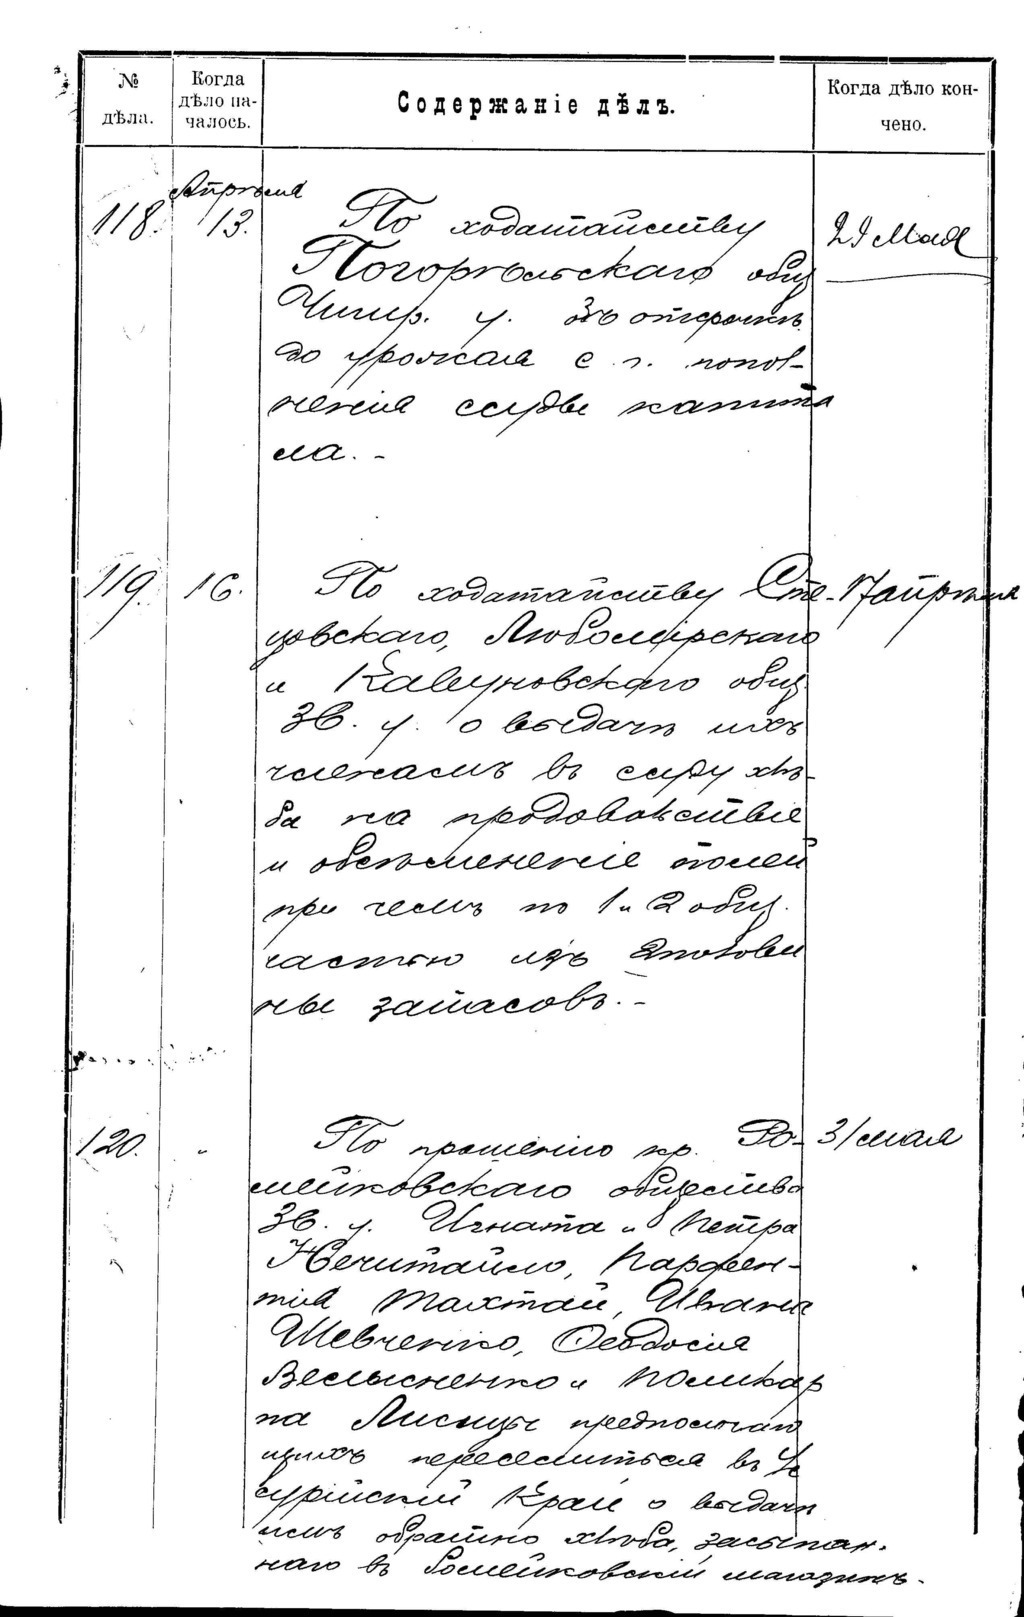 № дѣла.
Когда дѣло началось.
Содержаніе дѣлъ.
Когда дѣло кончено.
Апрѣля
118. 13. По ходатайству 29 Мая
Погорѣльскаго общ.
Чигир. у. объ отсрочкѣ
до урожая с. г. попол-
ненія ссудн. капита
ла. -
119. 16. По ходатайству Сте- 17 апрѣля
цовскаго, Любомірскаго
и Кавуновскаго общ.
Зв. у. о выдачѣ ихъ
членамъ въ ссуду хлѣ-
ба на продовольствіе
и обсѣмененіе полей
при чемъ по 1 и 2 общ.
частью изъ 2 полови
ны запасовъ. -
120. " По прошенію кр. Ро- 31 мая
мейковскаго общества
Зв. у. Игната и Петра
Нечитайло, Парфен-
тія Тахтай, Ивана
Шевченко, Ѳеодосія
и Поликар
па Лисицы предполагаю
щихъ переселиться въ Ус
сурійскій Край о выдачѣ
имъ обратно хлѣба, засыпан-
наго въ Ромейковскій магазинъ.